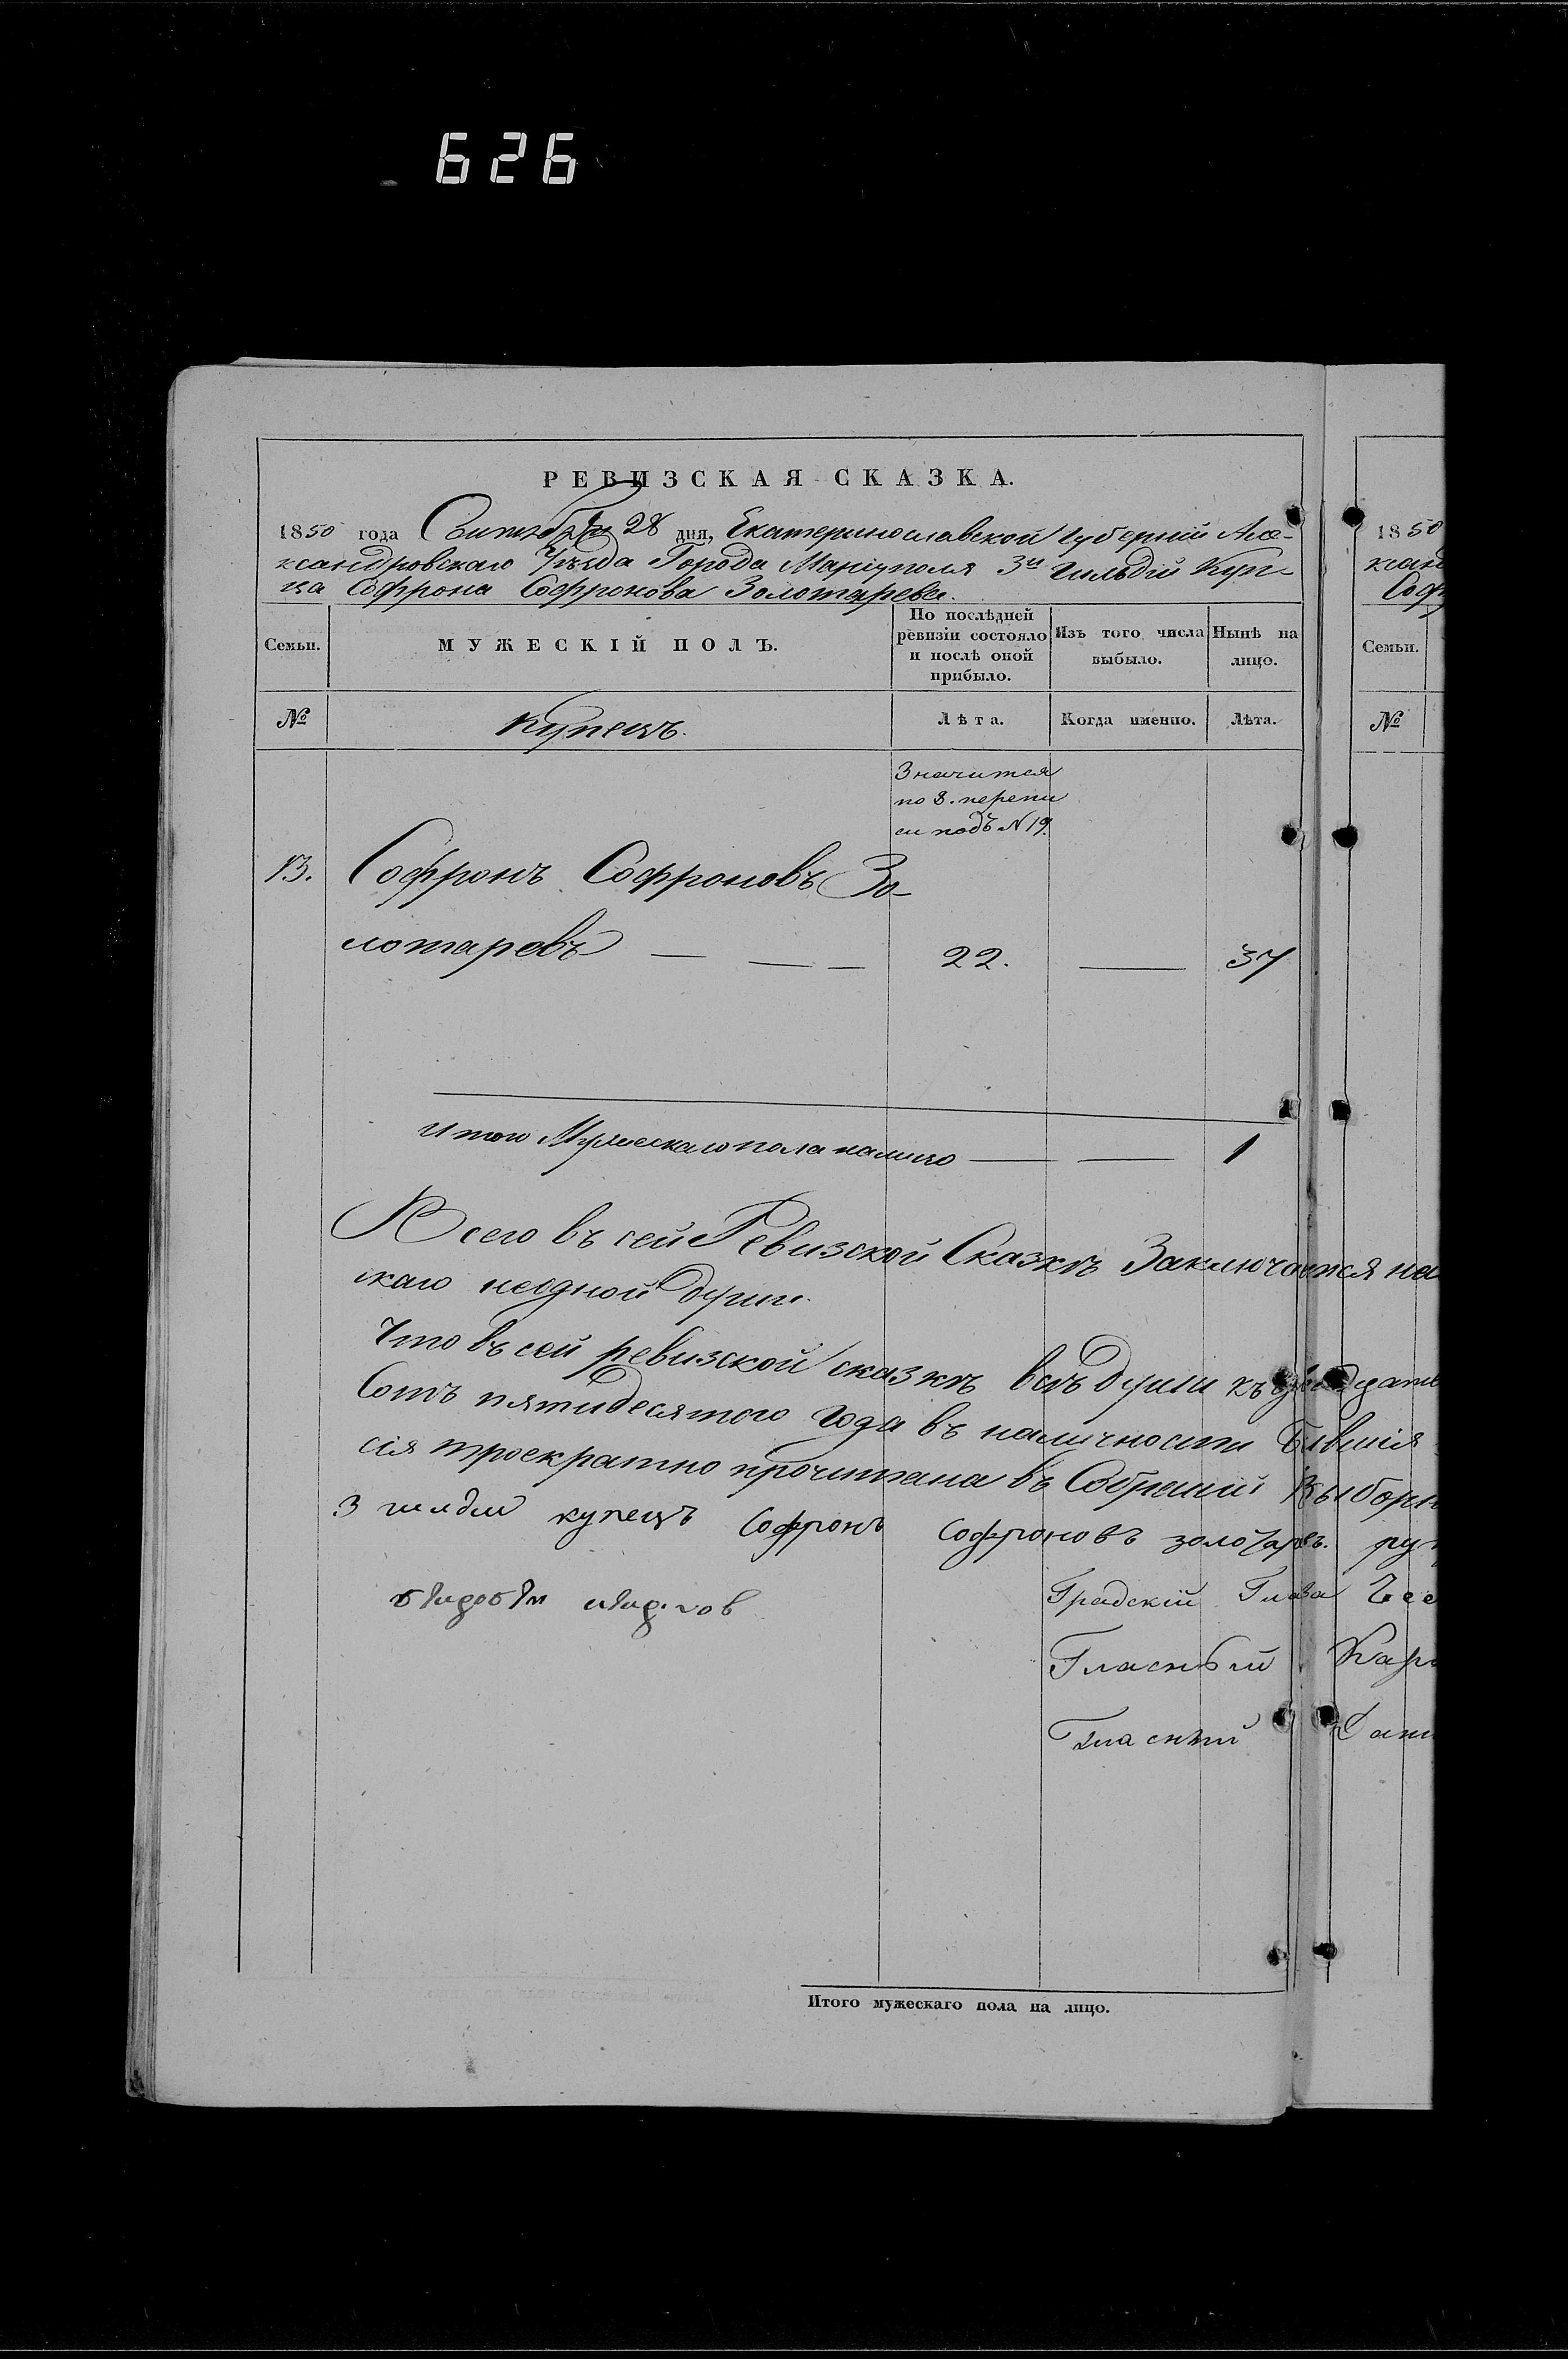 626
РЕВИЗСКАЯ СКАЗКА.
1850 года Сентября 28 дня, Екатеринославской Губерніи Але-
ксандровскаго Уѣзда Города Маріуполя 3й Гильдіи Куп-
ца Софрона Софронова Золотарева.
Семьи.
МУЖЕСКІЙ ПОЛЪ.
По послѣдней ревизіи состояло и послѣ оной прибыло.
Изъ того числа выбыло.
Нынѣ на лицо.
№
Купецъ.
Лѣта.
Когда именно.
Лѣта.
Значится
по 8. перепи
си подъ N 19.
13. Софронъ Софроновъ Зо-
лотаревъ — — — 22. — 37
Итого Мужескаго пола налицо — — 1
Всего въ сей Ревизской Сказкѣ Заключается на
скаго неодной души.
Что въ сей ревизской сказкѣ всѣ души къ
Сотъ пятидесятого Года въ наличности бывшія
сія троекратно прочитана въ Собраніи Выборн
3 гилдіи купецъ Софронъ Софроновъ золотарвъ. рук
Градскій Глава
Гласный Кара
Гласный
Итого мужескаго пола на лицо.
1850
ксанд
Соф
Семьи.
№